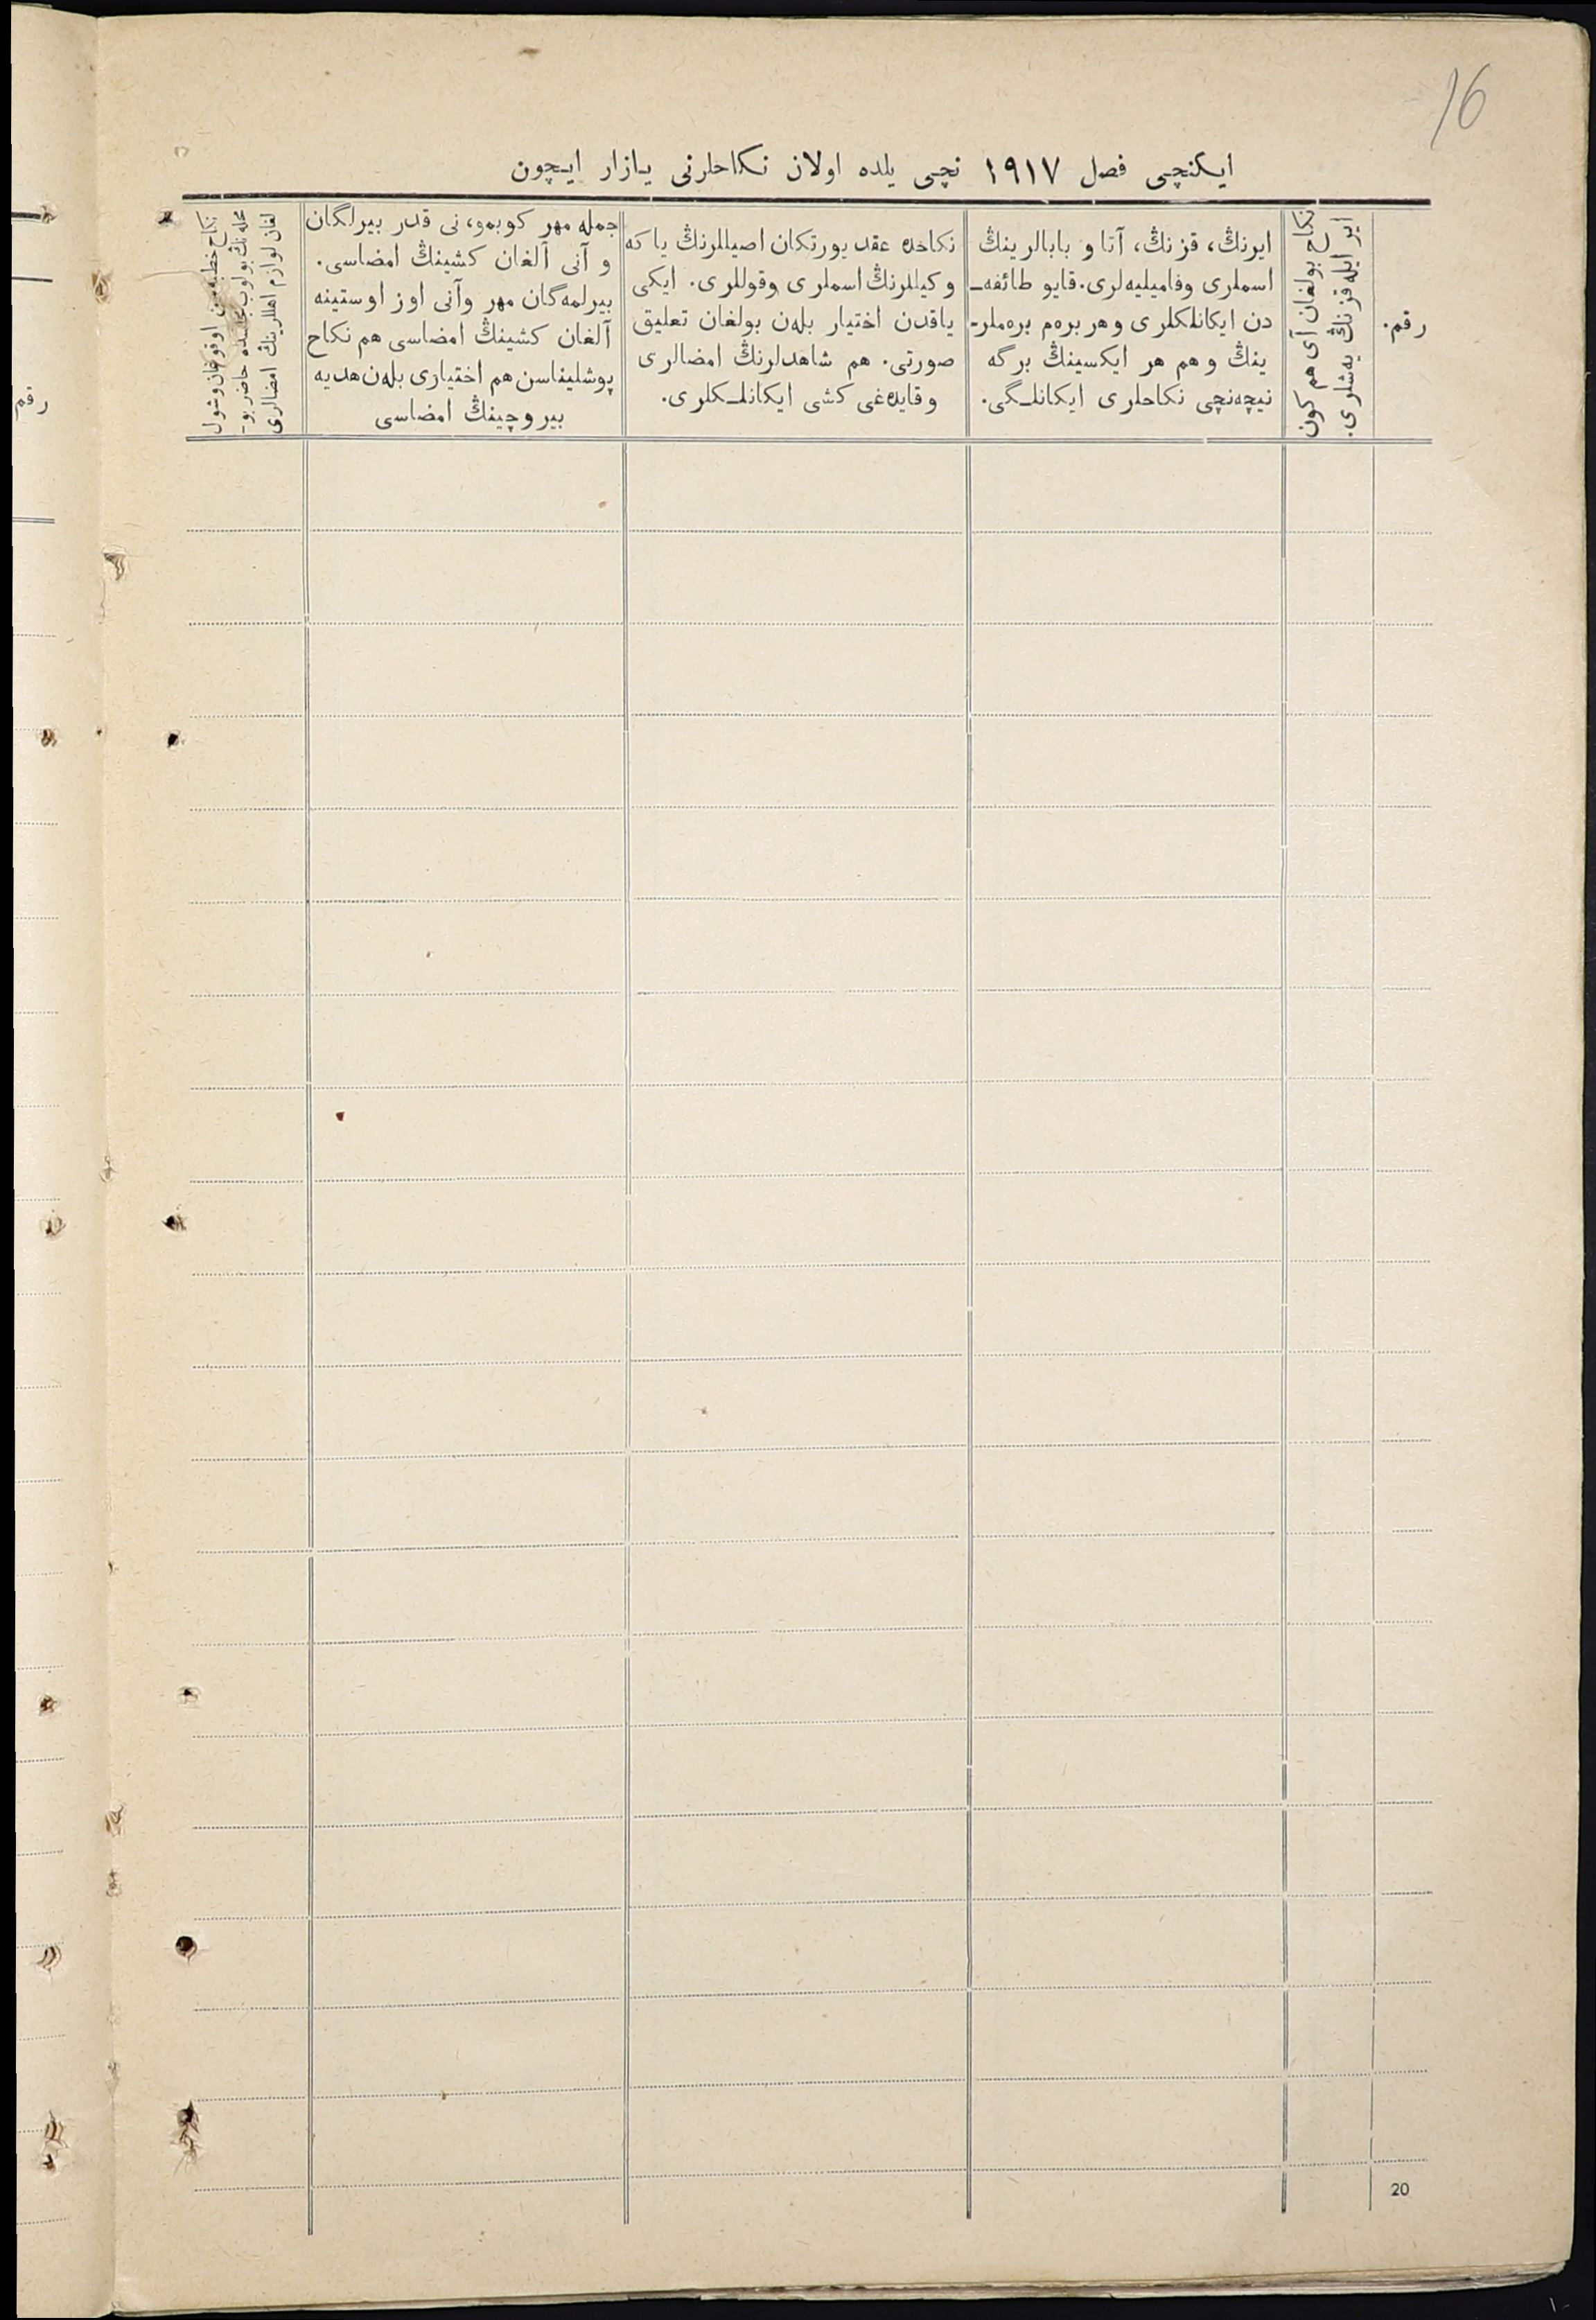 16
ایکنچی فصل ١٩١٧ نچی یلده اولان نکاحلرنی یازار ایچون
رقم.
نکاح بولغان آی هم کون
ایر ایله قزنڭ یه‌شلری.
ایرنڭ، قزنڭ، آتا و بابالرینڭ
اسملری وفامیلیه‌لری. قایو طائفه‌ـ
دن ایکانلکلری وهر بره‌م بره‌ملرـ
ینڭ وهم هر ایکسینڭ برگه
نیچه‌نچی نکاحلری ایکانلـگی.
نکاحده عقد یورتکان اصیللرنڭ یا که
وکیللرنڭ اسملری وقوللری. ایکی
یاقدن اختیار بله‌ن بولغان تعلیق
صورتی. هم شاهدلرنڭ امضالری
وقایده‌غی کشی ایکانلـکلری.
جمله مهر کوبمو، نی قدر بیرلگان
و آنی آلغان کشینڭ امضاسی.
بیرلمه‌گان مهر وآنی اوز اوستینه
آلغان کشینڭ امضاسی هم نکاح
پوشلیناسن هم اختیاری بله‌ن هدیه
بیروچینڭ امضاسی
نکاح خطبه‌سن اوقوغان وشول
محله‌نڭ بولوب مجلسده حاضر بوـ
لغان لوازم اهللرینڭ امضالری
رقم
20